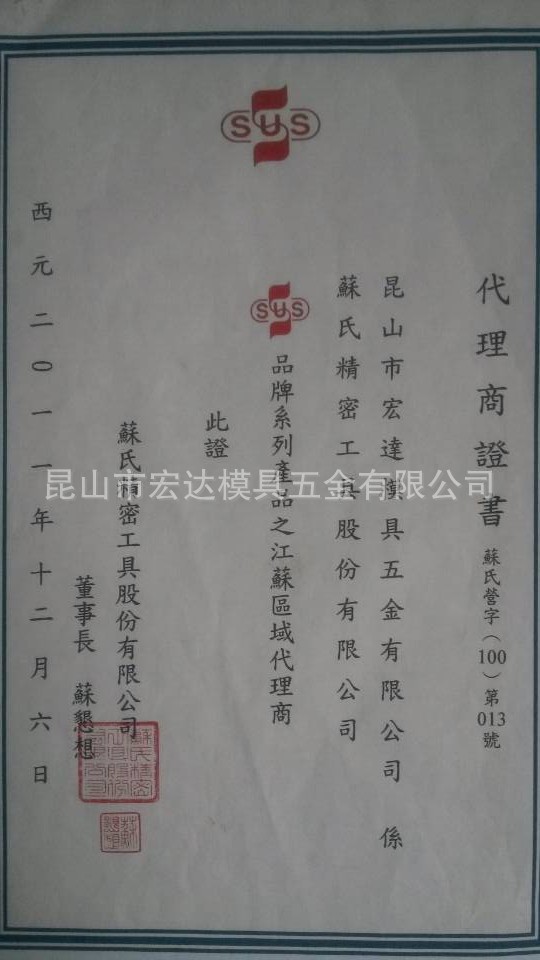 SUS
代理商證書 蘇氏營字（100）第013號
昆山市宏達模具五金有限公司 係
蘇氏精密工具股份有限公司
SUS 品牌系列產品之江蘇區域代理商
此證
蘇氏精密工具股份有限公司
董事長 蘇懇想
西元二〇一一年十二月六日
昆山市宏达模具五金有限公司